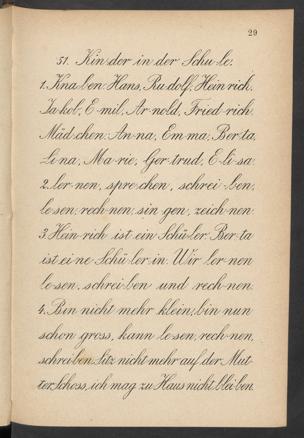 29
51. Kin-der in der Schu-le:
1. Kna-ben: Hans, Ru-dolf, Hein-rich,
Ja-kob, E-mil, Ar-nold, Fried-rich.
Mäd-chen: An-na, Em-ma, Ber-ta,
Li-na, Ma-rie, Ger-trud, E-li-sa.
2. ler-nen, spre-chen, schrei-ben,
le-sen, rech-nen, sin-gen, zeich-nen.
3. Hein-rich ist ein Schü-ler. Ber-ta
ist ei-ne Schü-ler-in. Wir ler-nen
le-sen, schrei-ben und rech-nen.
4. Bin nicht mehr klein, bin nun
schon gross, kann le-sen, rech-nen,
schrei-ben. Sitz nicht mehr auf der Mut-
ter Schoss, ich mag zu Haus nicht blei-ben.